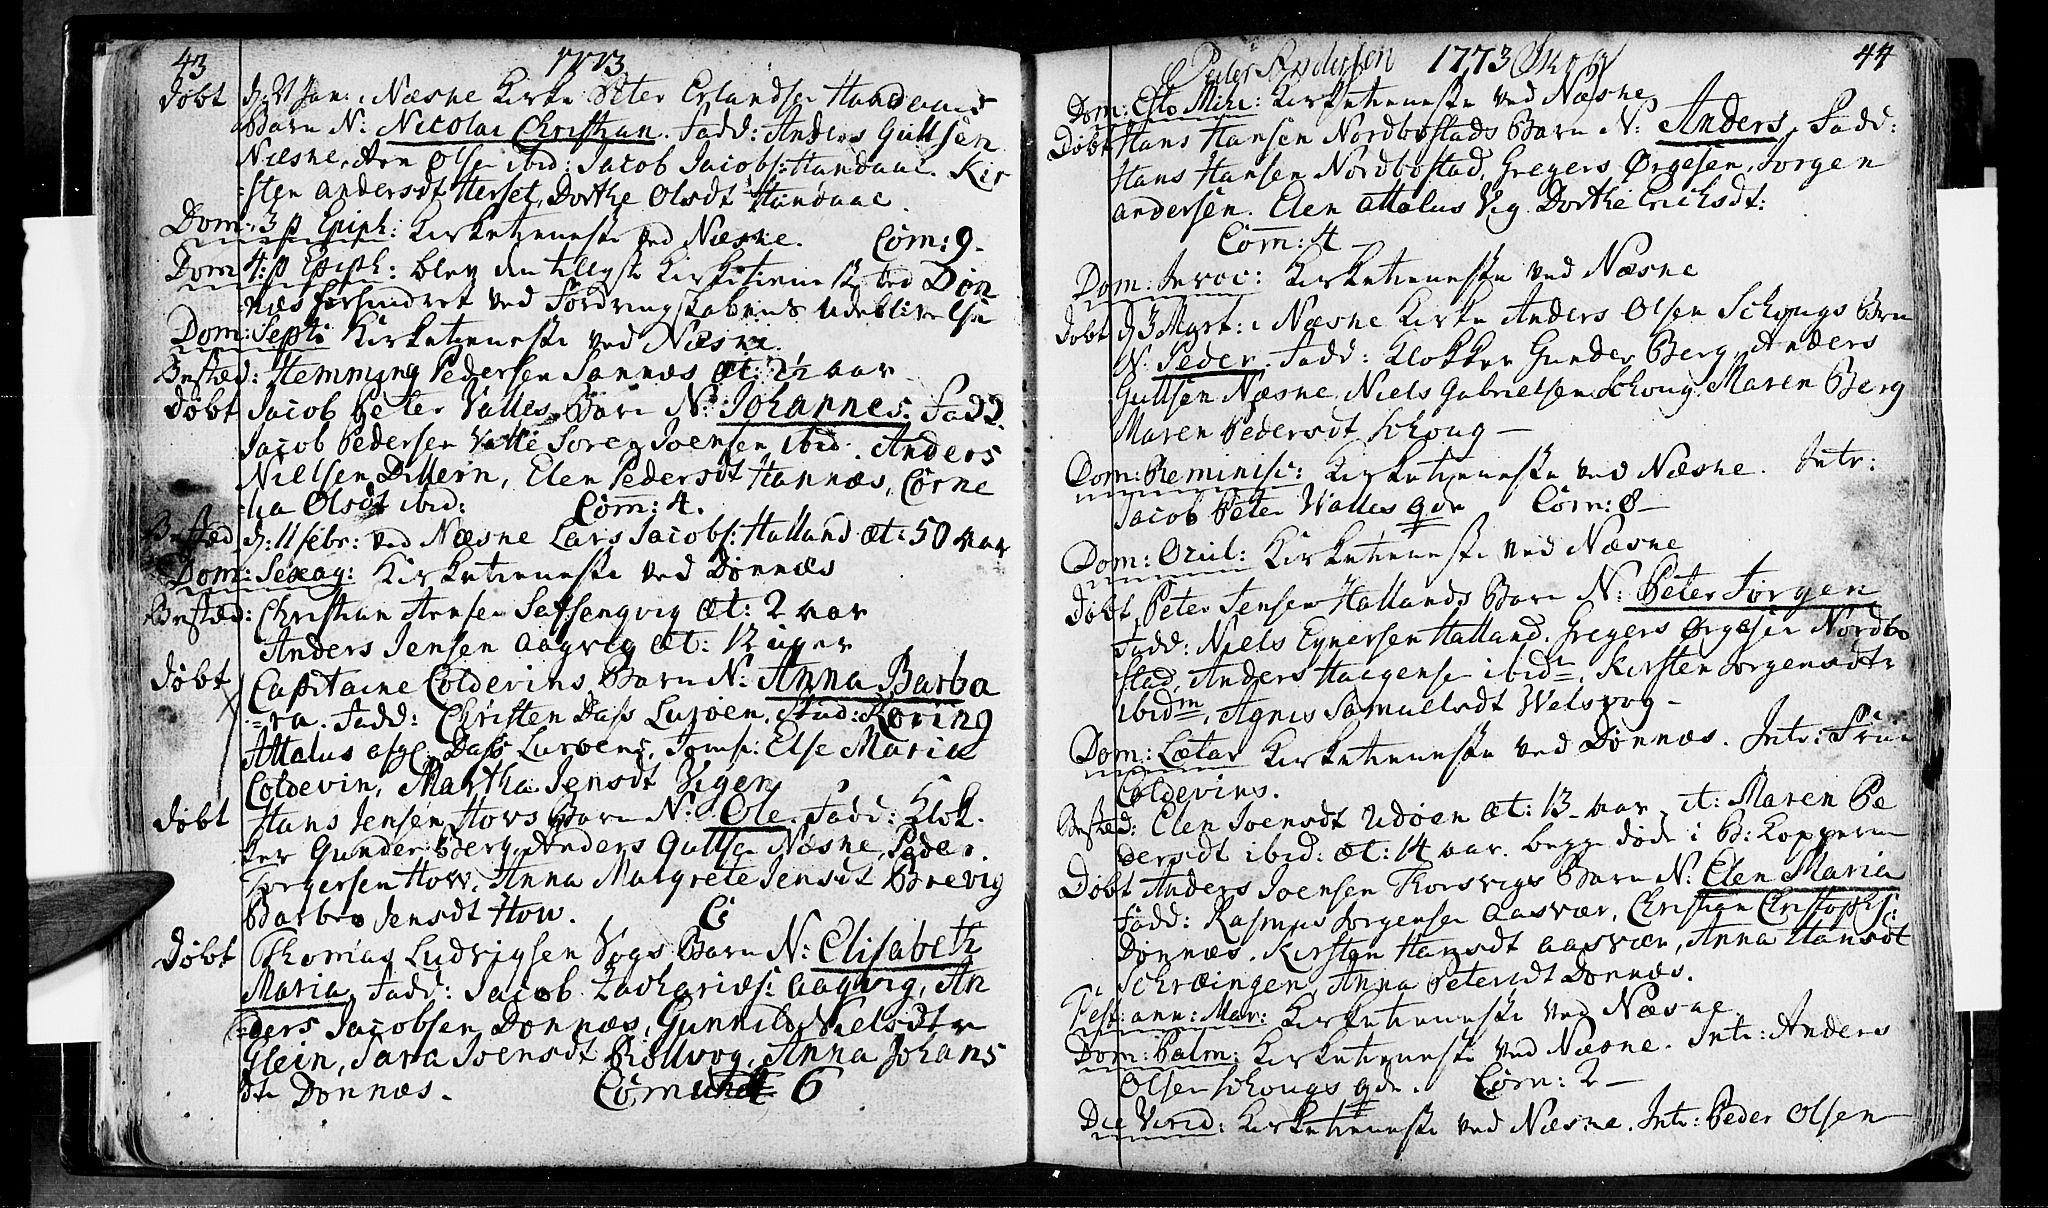 43 1773
døbt d: 21 Jan: i Næsne Kirke Peter Erlandsen Handaaes
Barn N: Nicolai Christian. Fadd: Anders Gullsen
Næsne, Arn Olsen ibid: Jacob Jacobs: Handaae. Kir
-sten andersdt Herset, Dorthe Olsdt Handaae.
Dom: 3 p Epiph: Kirketieneste ved Næsne. Com: 9-
Dom 4: p Epiph: blev den tillyste Kirketieneste ved Døn
næs forhindret ved Fordringskabens Udeblivelse
Dom: Sept: Kirketieneste ved Næsne.
Bested: Hemming Pedersen Sannæs æt: 2½ aar
døbt Jacob Peter Valles Barn N: Johannes. Fadd.
Jacob Pedersen Valle Soren Joensen ibid. Anders
Nielsen Dillern, Elen Pedersdt Hannæs, Corne
-lia Olsdt ibid: Com: 4.
Bested d: 11 febr: ved Næsne Lars Jacobs: Halland æt: 50 aar
Dom: Sexag: Kirketieneste ved Dønnæs
Bested: Christian Arnsen æt: 2 aar
Anders Jensen Aagvig æt: 12 uger
døbt Capitaine Coldevins Barn N: Anna Barba
-ra. Fadd: Christen Dass Lurøen, Stud: Røring
Attalus Dass Lurøens, Jomf: Else Maria
Coldevin, Martha Jensdt Vigen
døbt Hans Jensen Hovs Barn N: Ole. Fadd: Klok-
ker Gunder Berg, Anders Gullsen Næsne, Peder
Torgersen How, Anna Margrete Jensdt Brevig
Barbro Jensdt How. C:
Døbt Thomas Ludvigsen Vogs Barn N: Elisabeth
Maria Fadd: Jacob Zacharias: Aagvig, An
-ders Jacobsen Dønnæs, Gunnild Nielsdtr
Glein, Sara Joensdt Røllvog, Anna Johans
dtr Dønnæs. Com 6
Peder Andersen 1773 44
Dom: Esto Mihi: Kirketieneste ved Næsne
Døbt Hans Hansen Nordbostads Barn N: Anders. Fadd:
Hans Hansen Nordbostad, Gregers Ørgesen, Jorgen
andersen. Elen Attalus Vig. Dorthe Erichsdt:
Com: 4
Dom: Invoc: Kirketieneste ved Næsne
døbt d 3 Mart: i Næsne Kirke Anders Olsen Schougs Barn
N: Peder. Fadd: Klokker Gunder Berg, Anders
Gullsen Næsne. Niels Gabrielsen Schoug. Maren Berg
Maren Pedersdt Schoug-
Dom: Reminisc: Kirketieneste ved Næsne. Intr:
Jacob Peter Walles qde Com: 8-
Dom: Ocul: Kirketieneste ved Næsne
døbt Peter Jensen Hallands Barn N: Peter Jorgen
Fadd: Niels Eynersen Halland. Gregers Ørgesen Nordbo
stad, Anders Haagensen ibidm, Kirsten Jorgensdtr
ibidm, Agnis Samuelsdt Welsvog-
Dom: Lætar Kirketieneste ved Dønnæs. Intr: Frue
Coldevins.
Bested: Elen Joensdt Udøen æt: 13 aar, it: Maren Pe
dersdt ibid: æt: 14 aar. begge døde i B: Kopperne
Døbt Anders Joensen Thorsvigs Barn N: Elen Maria
Fadd: Rasmus Jorgensen Aasvær, Christian Christophs:
Dønnæs. Kirsten Hansdt Aasvær, Anna Hansdt
Schræingen, Anna Petersdt Dønnæs.
Fest: ann: Mar: Kirketieneste ved Næsne
Dom: Palm: Kirketieneste ved Næsne. Intr: Anders
Olsen Schougs qde. Com: 2-
Die Virid: Kirketieneste ved Næsne. Intr: Peder Olsen